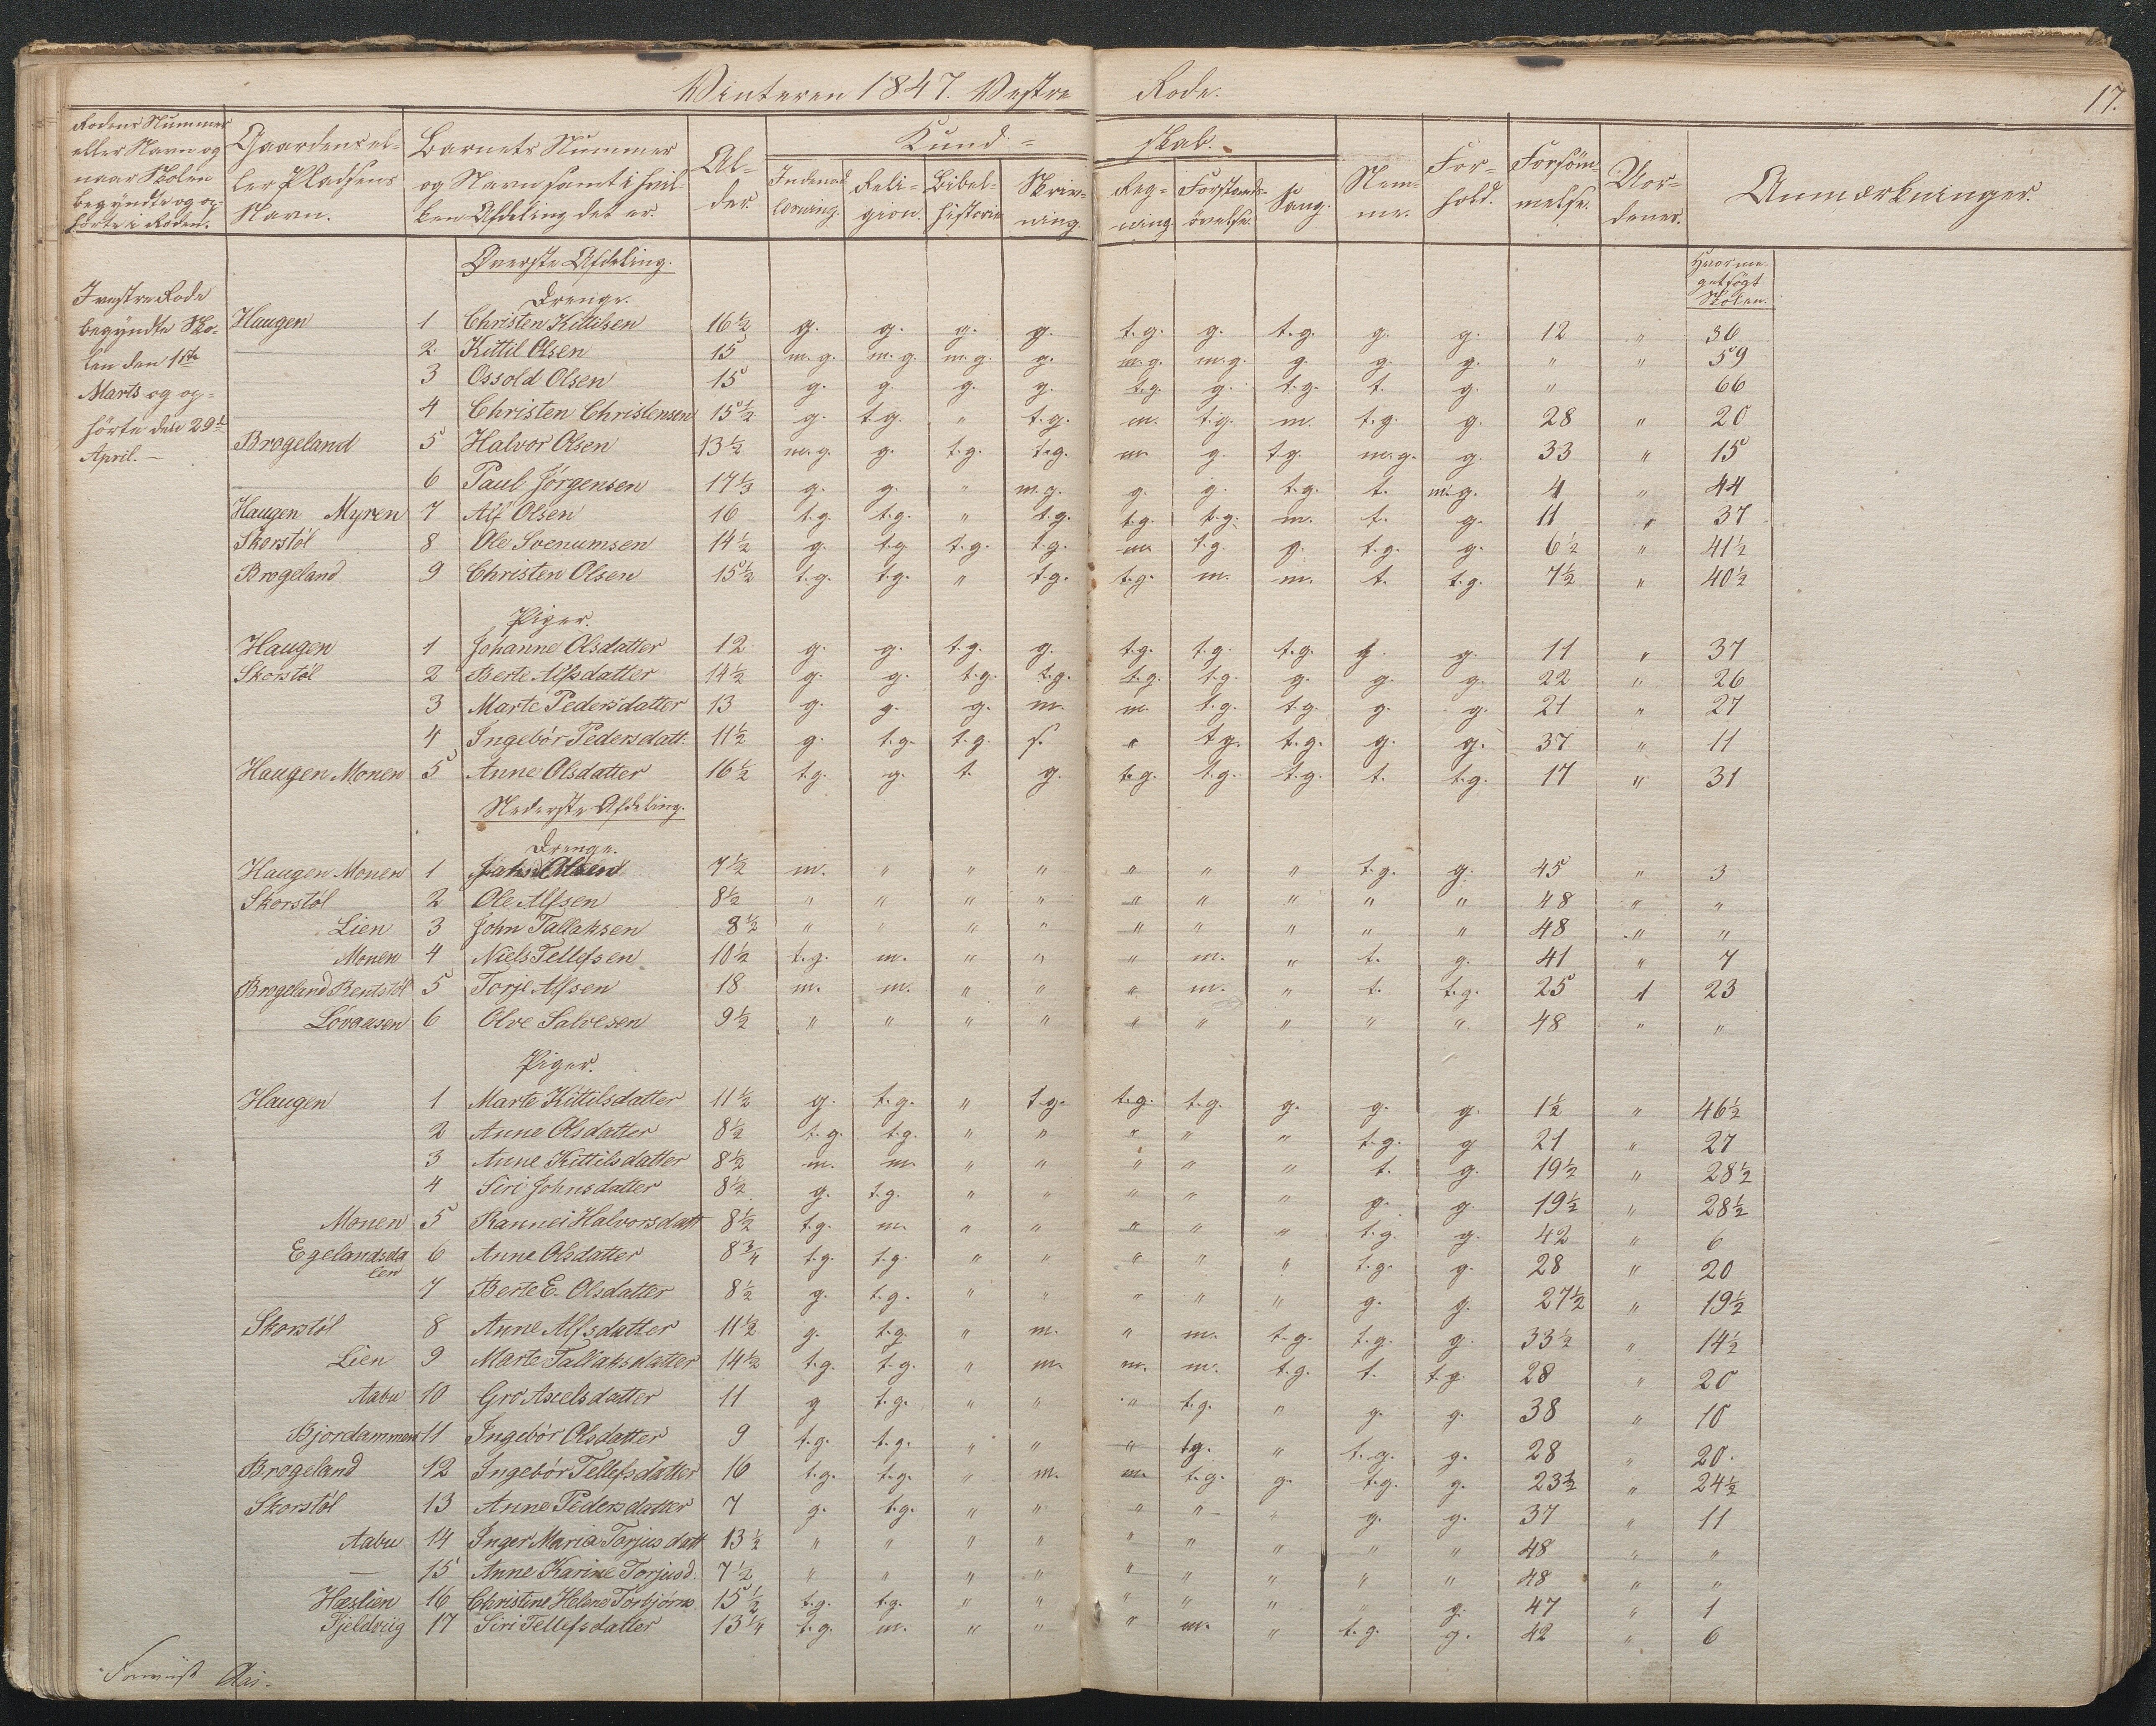 Vinteren 1847. Vestre Rode. 17.
Rodens Nummer eller Navn og naar Skolen begyndte og ophörte i Roden. | Gaardens eller Pladsens Navn. | Barnets Nummer og Navn samt i hvilken Afdeling det er. | Alder. | Kundskab. Indenadlæsning. | Religion. | Bibelhistorie | Skrivning. | Regning. | Forstandsövelse. | Sang. | Nemme. | Forhold. | Forsömmelse. | Uordener. | Anmærkninger.
Øverste Afdeling.
Hvormeget søgt Skolen.
Drenge.
I vestre Rode
begyndte Sko-
len den 1ste
Marts og op-
hörte den 29de
April. —
Haugen 1 Christen Kittilsen 16½ g. g. g. g. t.g. g. t.g. g. g. 12 " 36
2. Kittil Olsen 15 m.g. m.g. m.g. g. m.g. m.g. g. g. g. " " 59
3 Ossold Olsen 15 g. g. g. g. t.g. g. t.g. t. g. " 66
4 Christen Christensen 15½ g. t.g. " t.g. m. t.g. m. t.g. g. 28 " 20
Brøgeland 5 Halvor Olsen 13½ m.g. g. t.g. t.g. m. g. t.g. m.g. g. 33 " 15
6 Paul Jørgensen 17⅓ g. g. " m.g. g. g. t.g. t. m.g. 4 " 44
Haugen Myren 7 Alf Olsen 16 t.g. t.g. " t.g. t.g. t.g. m. t. g. 11 " 37
Skorstöl 8 Ole Svenumsen 14½ g. t.g. t.g. t.g. m. t.g. g. t.g. g. 6½ " 41½
Brøgeland 9 Christen Olsen 15½ t.g. t.g. " t.g. t.g. m. m. t. t.g. 7½ " 40½
Piger.
Haugen 1 Johanne Olsdatter 12 g. g. t.g. g. t.g. t.g. t.g. g. g. 11 " 37
Skorstöl 2 Berte Alfsdatter 14½ g. g. t.g. t.g. t.g. t.g. g. g. g. 22 " 26
3 Marte Pedersdatter 13 g. g. g. m. m. t.g. t.g. g. g. 21 " 27
4 Ingebör Pedersdatt. 11½ g. t.g. t.g. s. " t.g. t.g. g. g. 37 " 11
Haugen Monen 5 Anne Olsdatter 16½ t.g. g. t. g. t.g. t.g. t.g. t. t.g. 17 " 31
Nederste Afdeling.
Drenge.
Haugen Monen 1 Jahn Olsen 7½ m. " " " " " " t.g. g. 45 " 3
Skorstöl 2 Ole Alfsen 8½ " " " " " " " " " 48 " "
Lien 3 John Tallaksen 8½ " " " " " " " " " 48 " "
Monen 4 Niels Tellefsen 10½ t.g. m. " " " m. " t. g. 41 " 7
Brøgeland Rentstöl 5 Torje Alfsen 18 m. m. " " " m. " t. t.g. 25 1 23
Lövaasen 6 Olve Salvesen 9½ " " " " " " " " " 48 " "
Piger.
Haugen 1 Marte Kittilsdatter 11½ g. t.g. " t.g. t.g. t.g. g. g. g. 1½ " 46½
2 Anne Olsdatter 8½ t.g. t.g. " " " " " t.g. g 21 " 27
3 Anne Kittilsdatter 8½ m. m " " " " " t. g. 19½ " 28½
4 Siri Johnsdatter 8½ g. t.g. " " " " " g. g. 19½ " 28½
Monen 5 Rannei Halvorsdatt 8½ t.g. m. " " " " " t.g. g. 42 " 6
Egelandsdalen 6 Anne Olsdatter 8¾ t.g. t.g. " " " " " t.g. g. 28 " 20
7 Berte E. Olsdatter 8½ g. t.g. " " " " " g. g. 27½ " 19½
Skorstöl 8 Anne Alfsdatter 11½ g. t.g. " m. " m. t.g. t.g. g. 33½ " 14½
Lien 9 Marte Tallaksdatter 14½ t.g. t.g. " m m. m. t.g. t. t.g 28 " 20
Aabu 10 Gro Axelsdatter 11 g t.g. " " " t.g. " g. g. 38 " 10
Bjordammen 11 Ingebör Olsdatter 9 t.g. t.g. " " " tg. " t.g. g. 28 " 20.
Brøgeland 12 Ingebör Tellefsdatter 16 t.g. t.g. " m. m. t.g. g. t.g. g. 23½ " 24½
Skorstöl 13 Anne Pedersdatter 7 g. t.g. " " " " " g. g. 37 " 11
Aabu 14 Inger Maria Torjusdatt 13½ " " " " " " " " " 48 " "
— 15 Anne Karine Torjusd. 7½ " " " " " " " " " 48 " "
Hæslien 16 Christine Helene Torbjörns. 15½ t.g. t.g. " " " " " " g. 47 " 1
Fjeldviig 17 Siri Tellefsdatter 13¼ t.g. m. " " " m. " t.g. g. 42 " 6